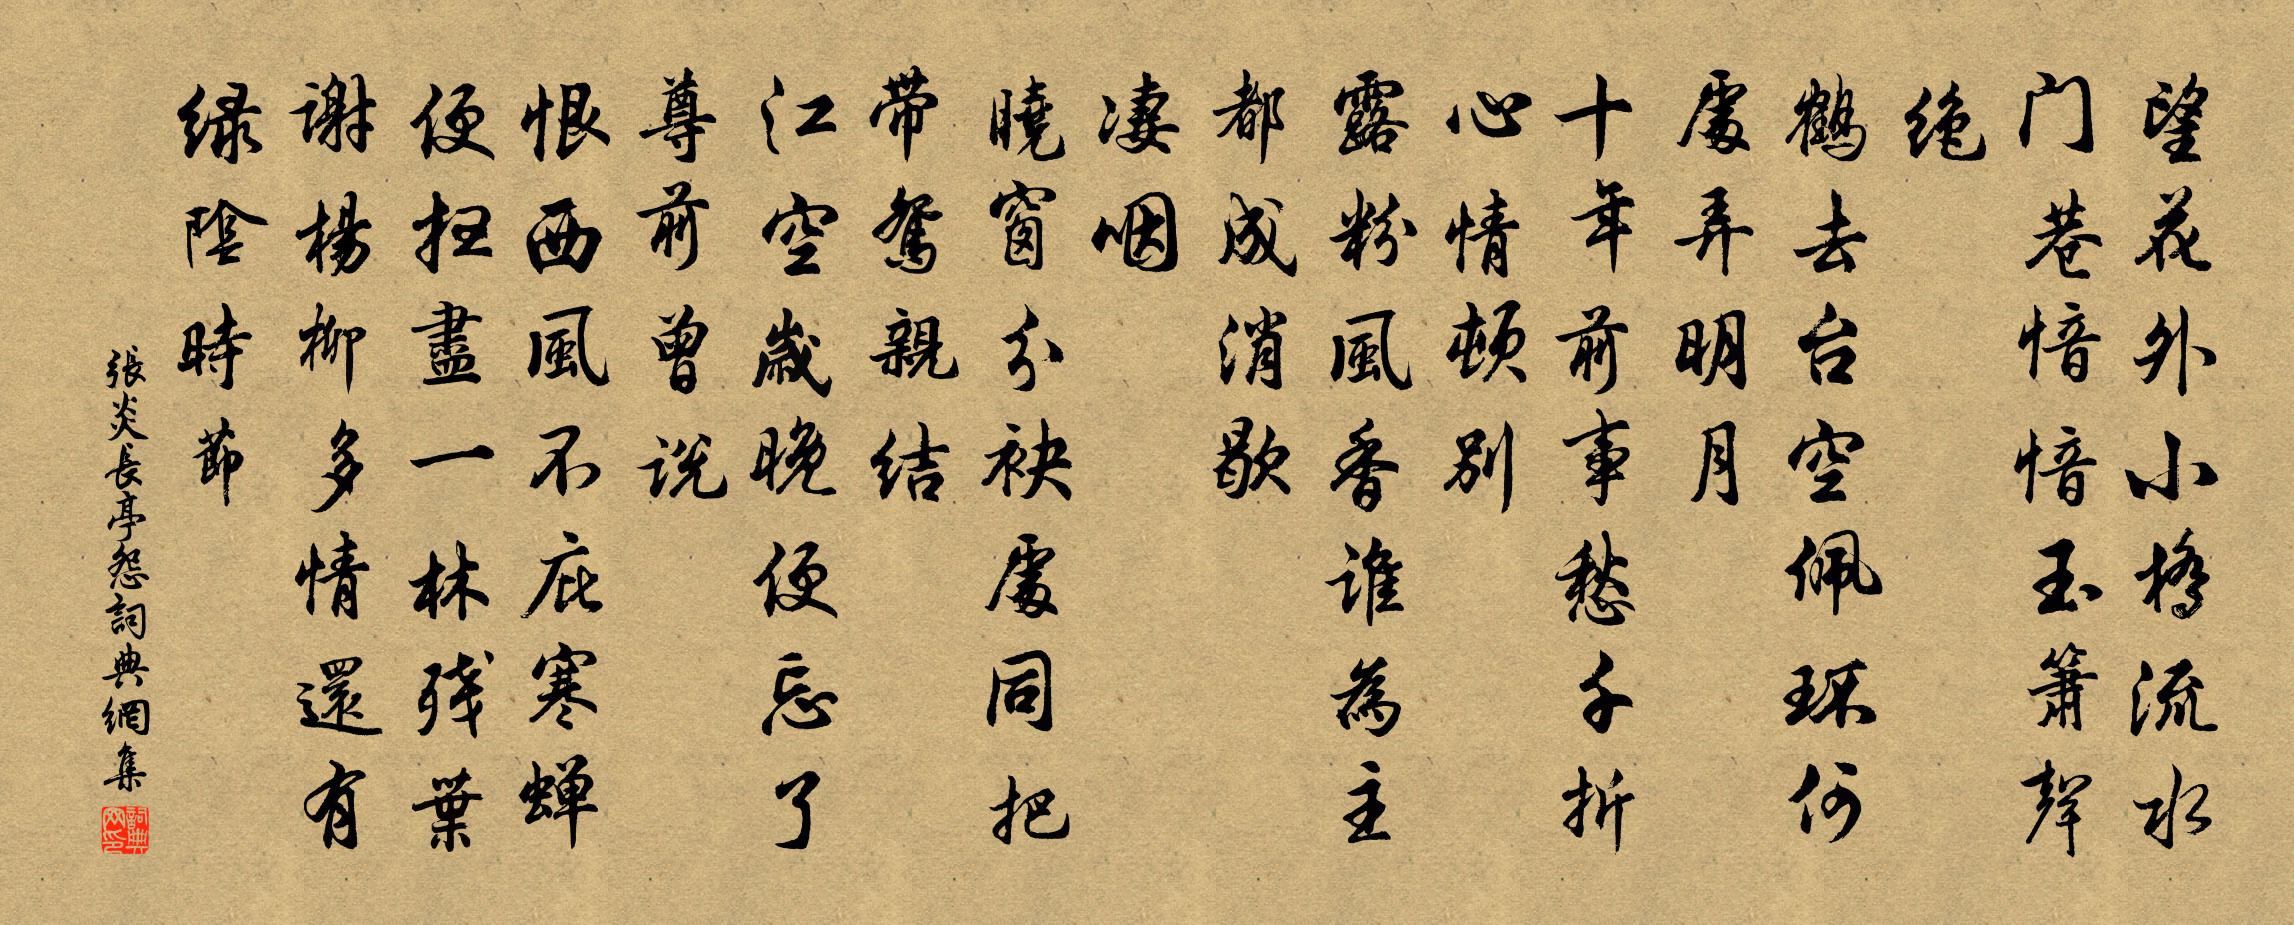 望花外小橋流水
门巷愔愔玉簫聲
绝
鶴去台空佩環何
處弄明月
十年前事愁千折
心情頓别
露粉風香谁為主
都成消歇
凄咽
曉窗分袂處同把
带鴛親结
江空歲晚便忘了
尊前曾说
恨西風不庇寒蝉
便扫盡一林残葉
谢楊柳多情還有
绿陰時節
張炎長亭怨詞典網集
詞典网印